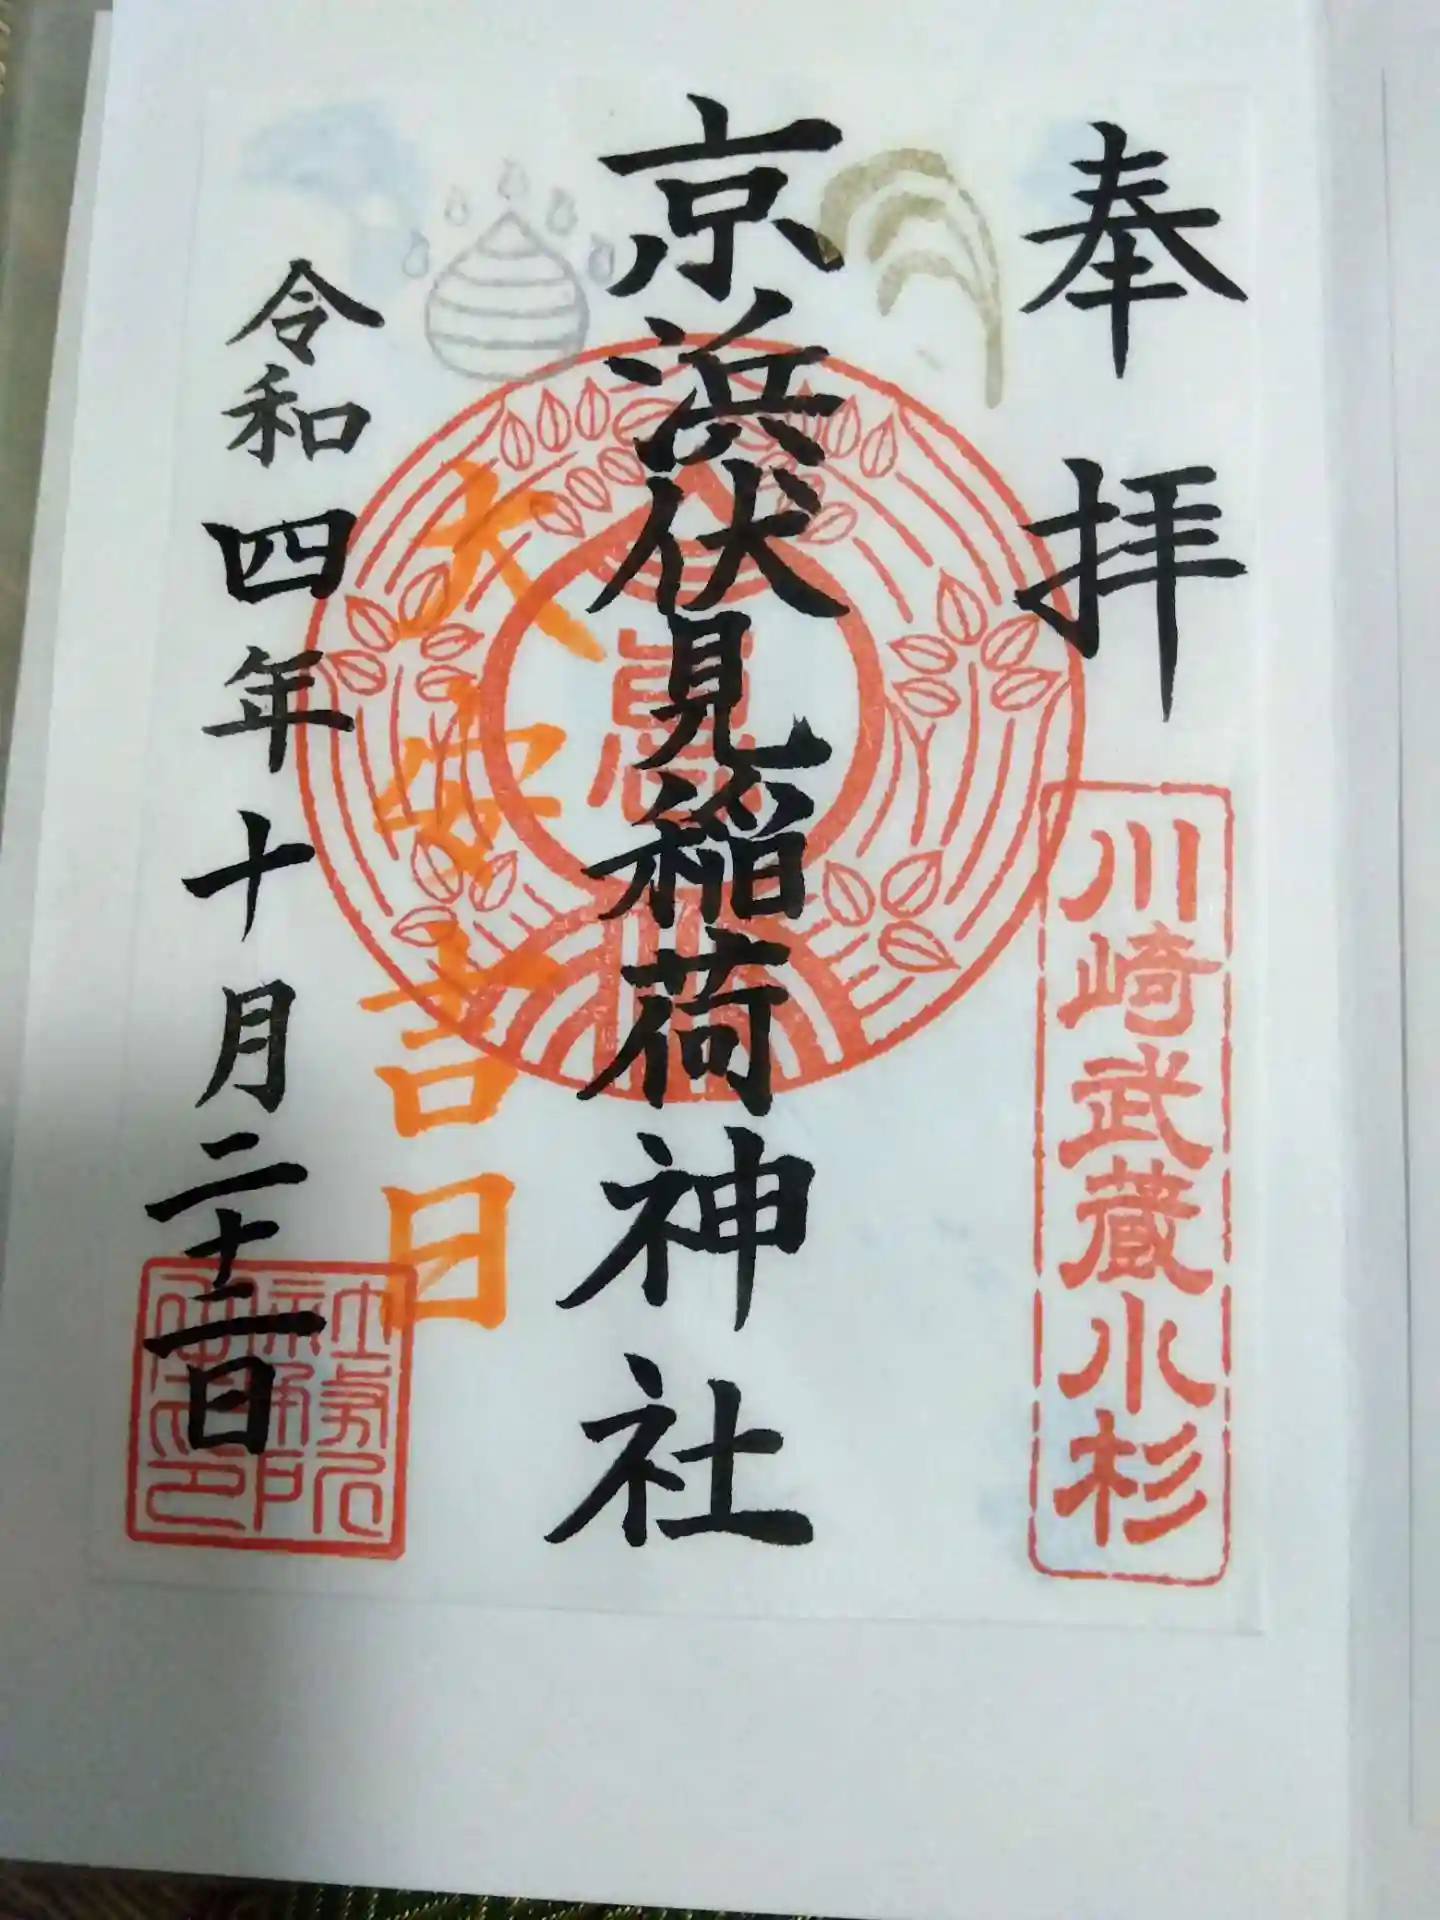 奉拝
川崎武蔵小杉
京浜伏見稲荷神社
大安吉日
令和四年十月二十二日